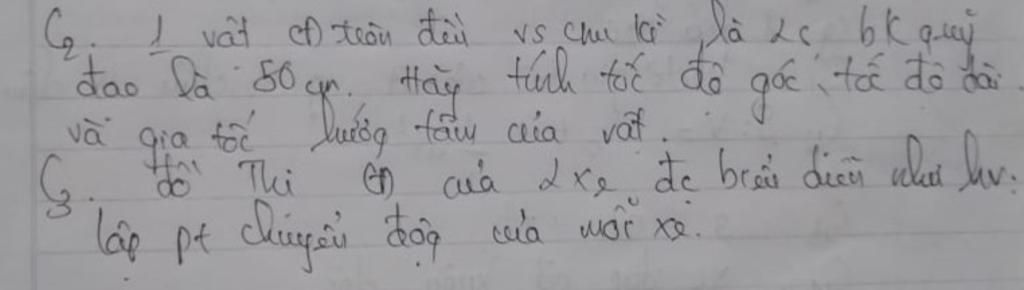 C2. 1 vật cđ tròn đều vs chu kì là 2s bk quỹ
đạo là 50 cm. Hãy tính tốc độ góc, tốc độ dài
và gia tốc hướng tâm của vật.
C3. đồ Thị cđ của 2 xe đc biểu diễn như hv:
lập pt chuyển động của mỗi xe.